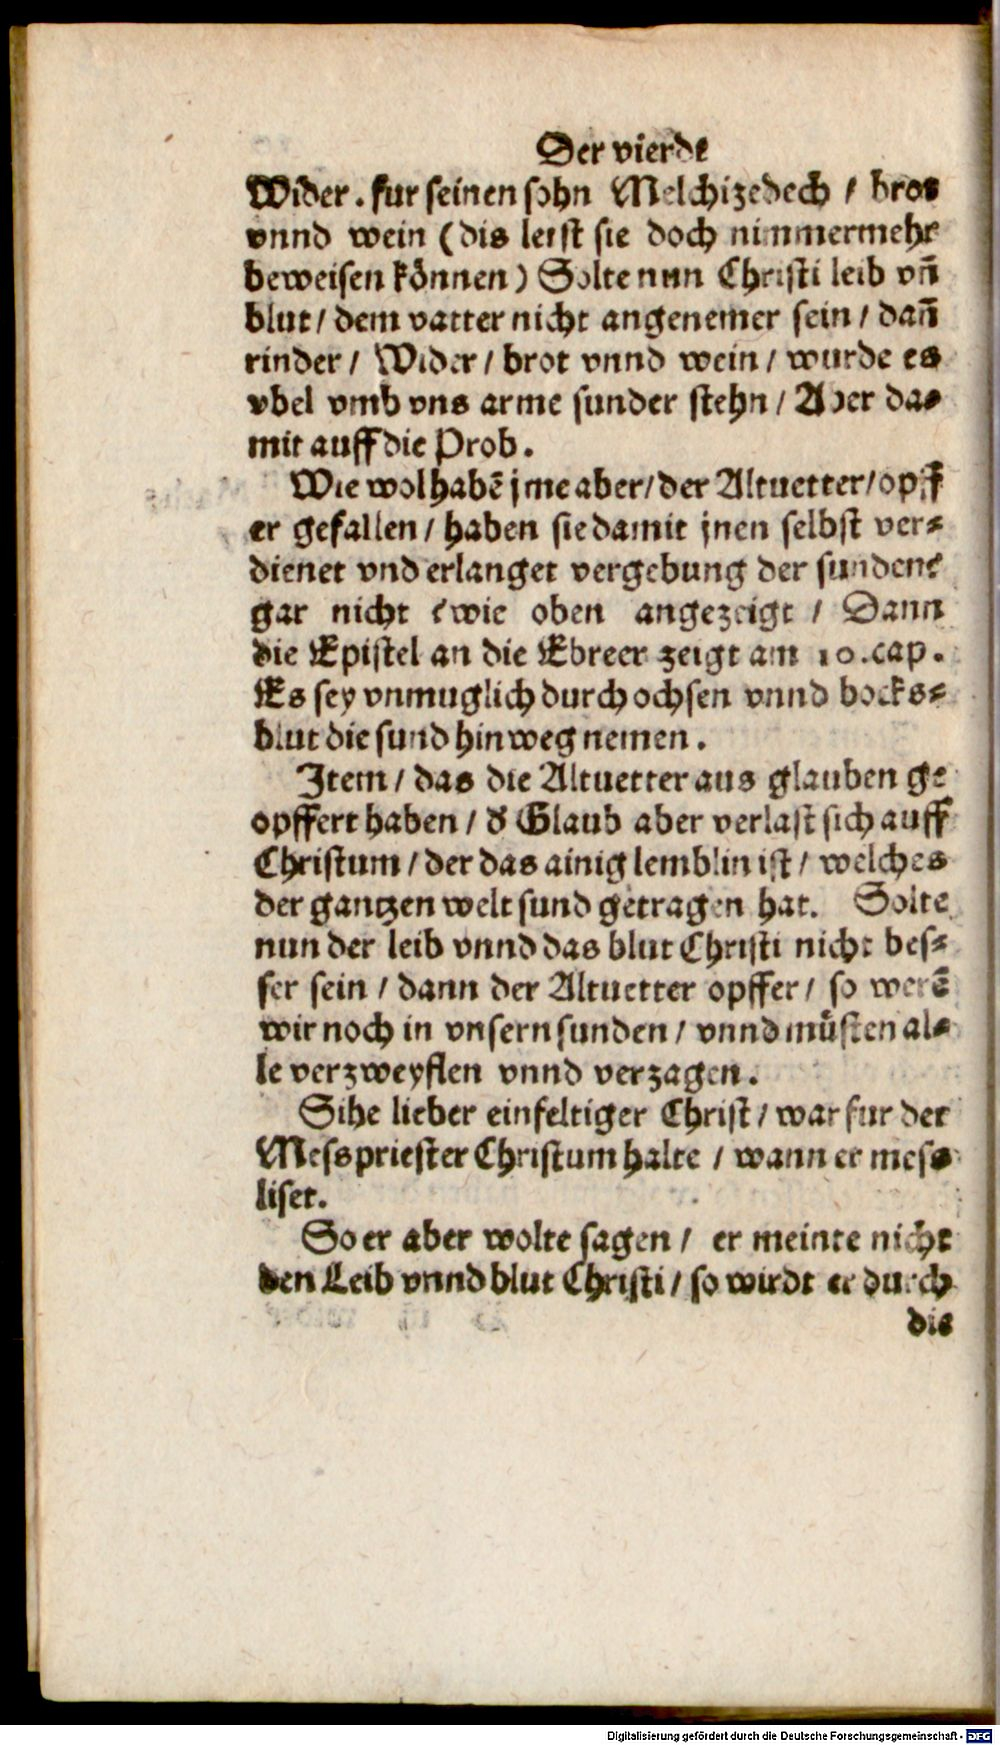 Der vierde
Wider. fur seinen sohn Melchizedech / brot
vnnd wein (dis leist sie doch nimmermehr
beweisen können) Solte nun Christi leib vn̄
blut / dem vatter nicht angenemer sein / dan̄
rinder / Wider / brot vnnd wein / wurde es
vbel vmb vns arme sunder stehn / Aber da=
mit auff die Prob.
Wie wol habē jme aber / der Altuetter / opff
er gefallen / haben sie damit jnen selbst ver=
dienet vnd erlanget vergebung der sunden?
gar nicht / wie oben angezeigt / Dann
die Epistel an die Ebreer zeigt am 10.cap.
Es sey vnmuglich durch ochsen vnnd bocks=
blut die sund hinweg nemen.
Item / das die Altuetter aus glauben ge
opffert haben / d' Glaub aber verlast sich auff
Christum / der das ainig lemblin ist / welches
der gantzen welt sund getragen hat. Solte
nun der leib vnnd das blut Christi nicht bes=
ser sein / dann der Altuetter opffer / so werē
wir noch in vnsern sunden / vnnd müsten al=
le verzweyflen vnnd verzagen.
Sihe lieber einfeltiger Christ / war fur der
Messpriester Christum halte / wann er mess
liset.
So er aber wolte sagen / er meinte nicht
den Leib vnnd blut Christi / so wirdt er durch
die
Digitalisierung gefördert durch die Deutsche Forschungsgemeinschaft - DFG